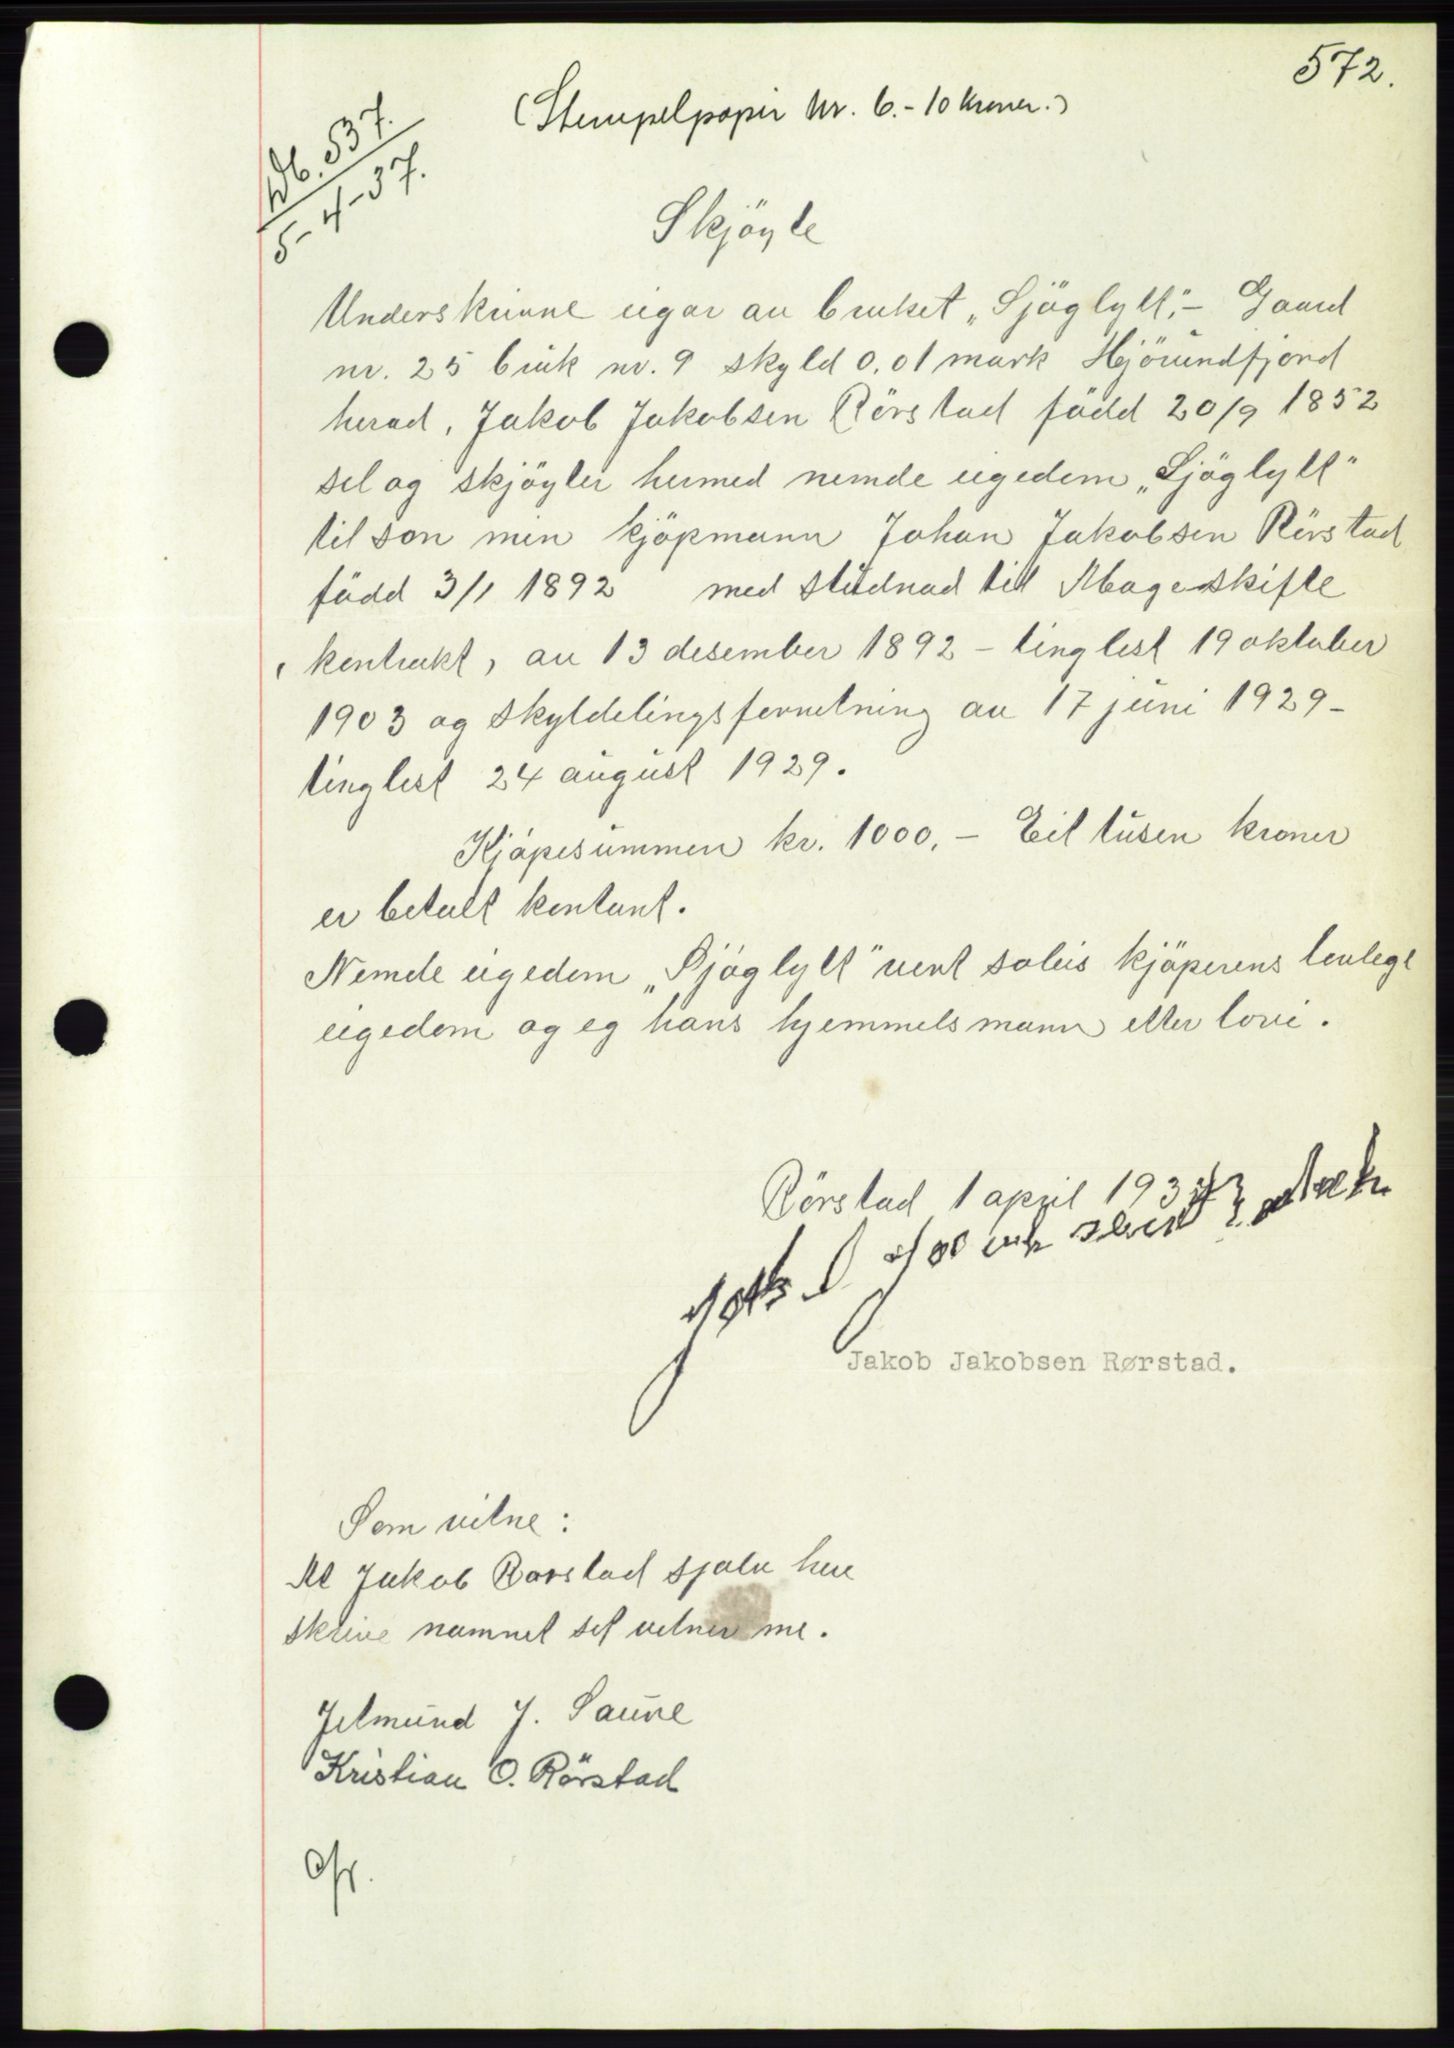 572.
(Stempelpapir Nr. 6.- 10 kroner.)
Db. 537.
5-4-37.
Skjöyte
Underskrivne eigar av bruket „Sjöglytt",- Gaard
nr. 25 bruk nr. 9 skyld 0,01 mark Hjörundfjord
herad, Jakob Jakobsen Rörstad född 20/9 1852
sel og skjöyter hermed nemde eigedom „Sjöglytt"
til son min kjöpmann Johan Jakobsen Rörstad
född 3/1 1892 med studnad til Mageskifte
kontrakt, av 13 desember 1892 - tinglest 19 oktober
1903 og skyldelingsforretning av 17 juni 1929-
tinglest 24 august 1929.
Kjöpesummen kr. 1000,- Eit tusen kroner
er betalt kontant.
Nemde eigedom „Sjöglytt" vert soleis kjöperens lovlege
eigedom og eg hans hjemmelsmann etter lovi.
Rörstad 1 april 1937
Jakob Jakobsen Rørstad.
Som vitne:
At Jakob Rorstad sjølv have
skrive namnet sit vitner me.
Jetmund J. Saure
Kristian O. Rörstad